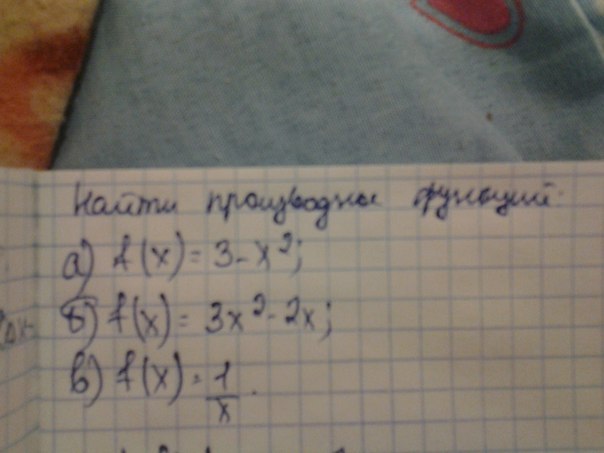 Найти производные функций.
а) f(x) = 3 - x²;
б) f(x) = 3x² - 2x;
в) f(x) = 1/x.